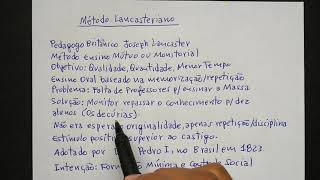 Método Lancasteriano
Pedagogo Britânico Joseph Lancaster
Método Ensino Mútuo ou Monitorial
Objetivo: Qualidade, Quantidade, Menor Tempo
Ensino Oral baseado na memorização/repetição
Problema: Falta de Professores p/ensinar a Massa
Solução: Monitor repassar o conhecimento p/dez
alunos (Os decúrias).
Não era esperada originalidade, apenas repetição/disciplina
Estímulo positivo superior ao Castigo.
Adotado por Pedro I, no Brasil em 1823.
Intenção: Mínima e Controle Social